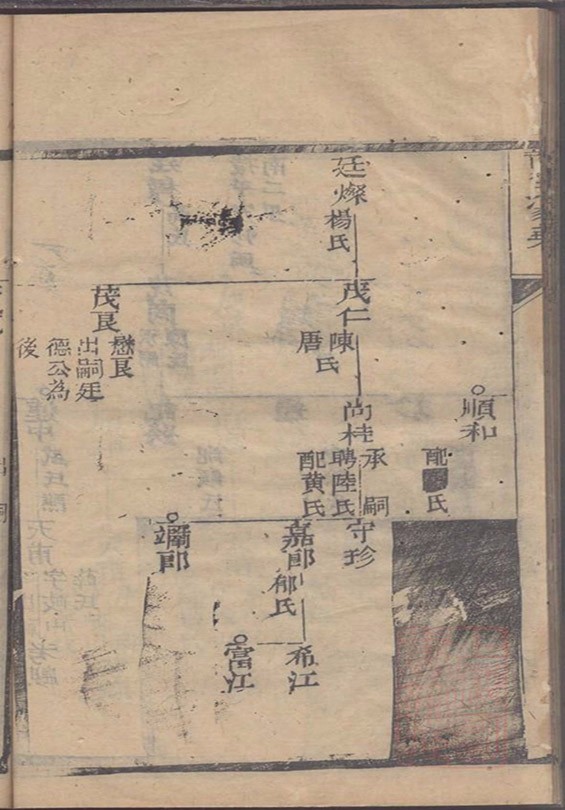 廷燦
楊氏
茂仁
陳氏
唐
茂良
懋良
出嗣廷
德公為
後
順和
配
氏
尚桂
承嗣
聘陸氏
配黃氏
守珍
嘉郎
郁氏
翊郎
希江
富江